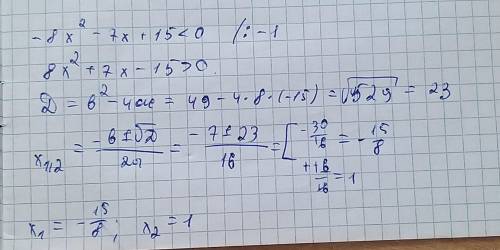 -8x² - 7x + 15 < 0 /: -1
8x² + 7x - 15 > 0.
D = b² - 4ac = 49 - 4·8·(-15) = √529 = 23
x₁/₂ = (-b ± √D)/2a = (-7 ± 23)/16 = [ -30/16 = -15/8
+16/16 = 1
x₁ = -15/8 ; x₂ = 1